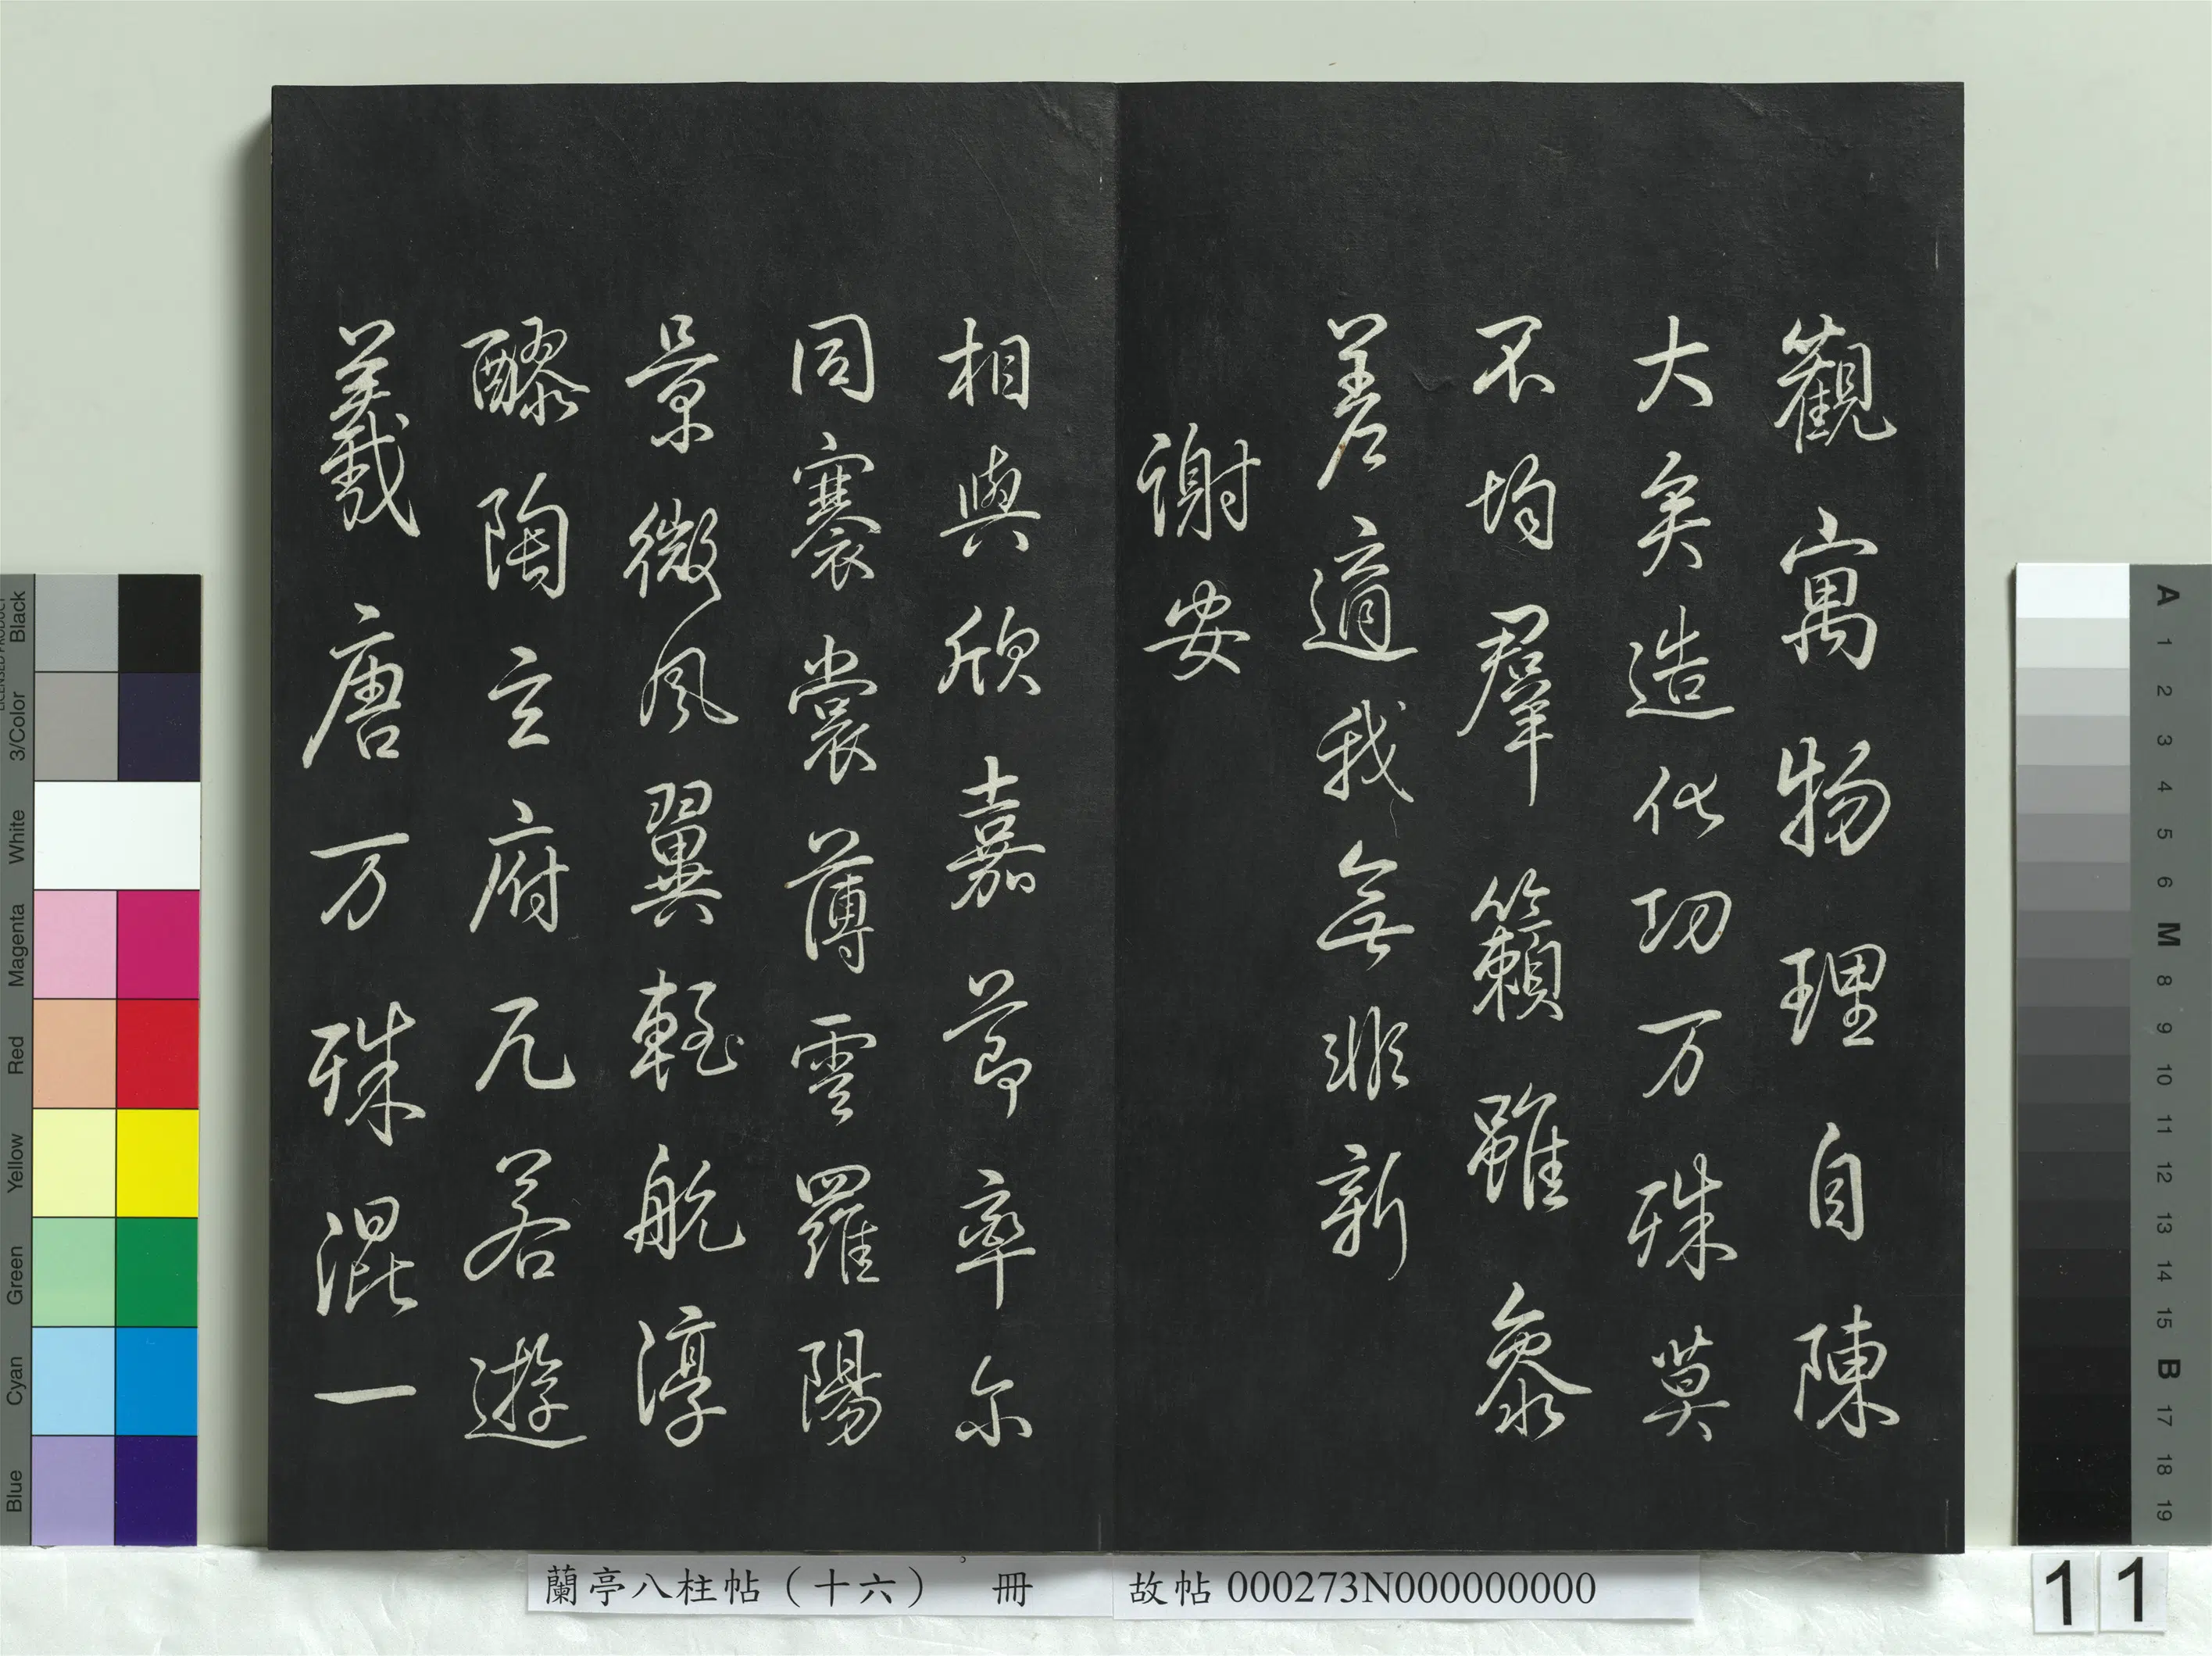 觀寓物理自陳
大矣造化功万殊莫
不均羣籟雖叅
差適我無非新
謝安
相與欣嘉節率尔
同褰裳薄雲羅陽
景微風翼輕航淳
醪陶玄府兀若遊
羲唐万殊混一
蘭亭八柱帖（十六） 冊
故帖000273N000000000
11
Black
3/Color
White
Magenta
Red
Yellow
Green
Cyan
Blue
A 1 2 3 4 5 6 M 8 9 10 11 12 13 14 15 B 17 18 19